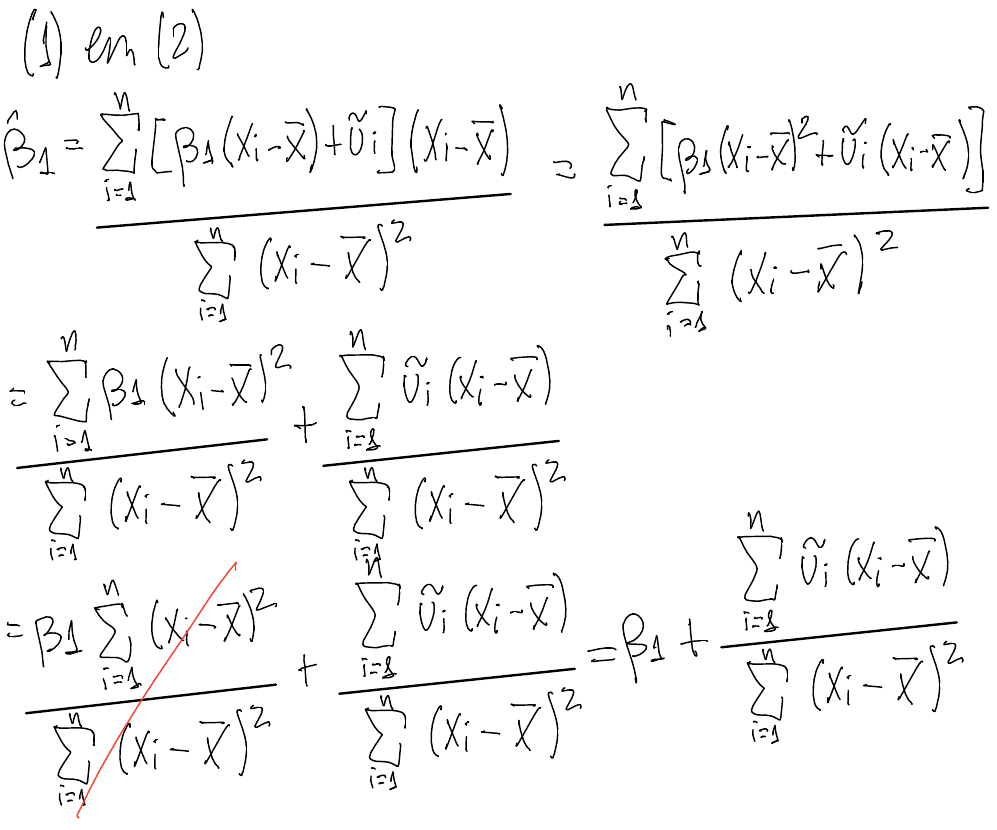 (1) em (2)
β̂1 = \frac{\sum_{i=1}^{n} [β1(Xi-X̄)+ũi](Xi-X̄)}{\sum_{i=1}^{n} (Xi-X̄)^2} = \frac{\sum_{i=1}^{n} [β1(Xi-X̄)^2+ũi(Xi-X̄)]}{\sum_{i=1}^{n} (Xi-X̄)^2}
= \frac{\sum_{i=1}^{n} β1(Xi-X̄)^2}{\sum_{i=1}^{n} (Xi-X̄)^2} + \frac{\sum_{i=1}^{n} ũi(Xi-X̄)}{\sum_{i=1}^{n} (Xi-X̄)^2}
= \frac{β1 \sum_{i=1}^{n} (Xi-X̄)^2}{\sum_{i=1}^{n} (Xi-X̄)^2} + \frac{\sum_{i=1}^{n} ũi(Xi-X̄)}{\sum_{i=1}^{n} (Xi-X̄)^2} = β1 + \frac{\sum_{i=1}^{n} ũi(Xi-X̄)}{\sum_{i=1}^{n} (Xi-X̄)^2}